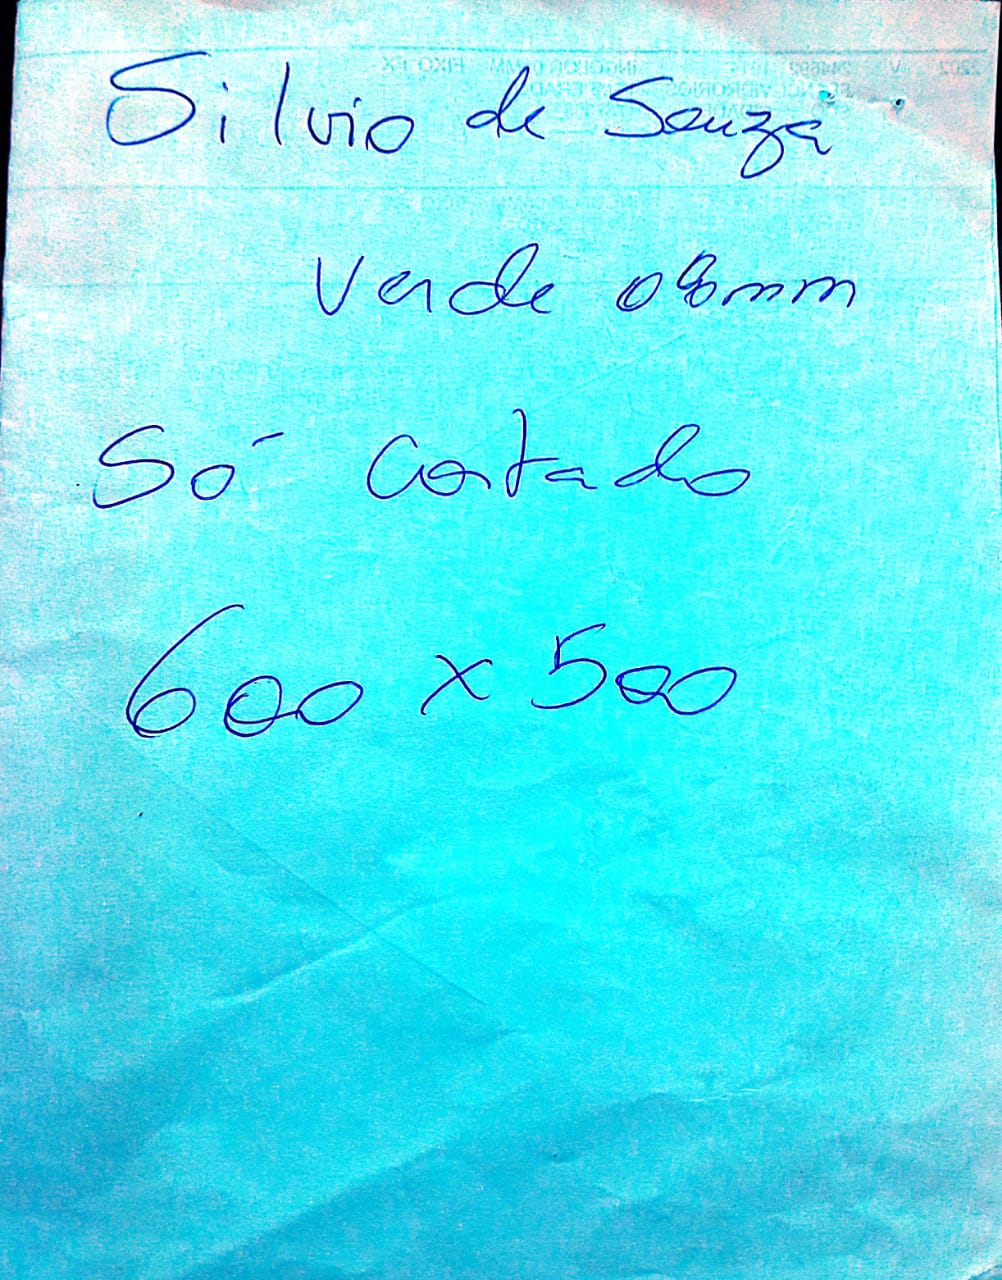 Silvio de Souza
Verde 08mm
Só Cortado
600 x 500